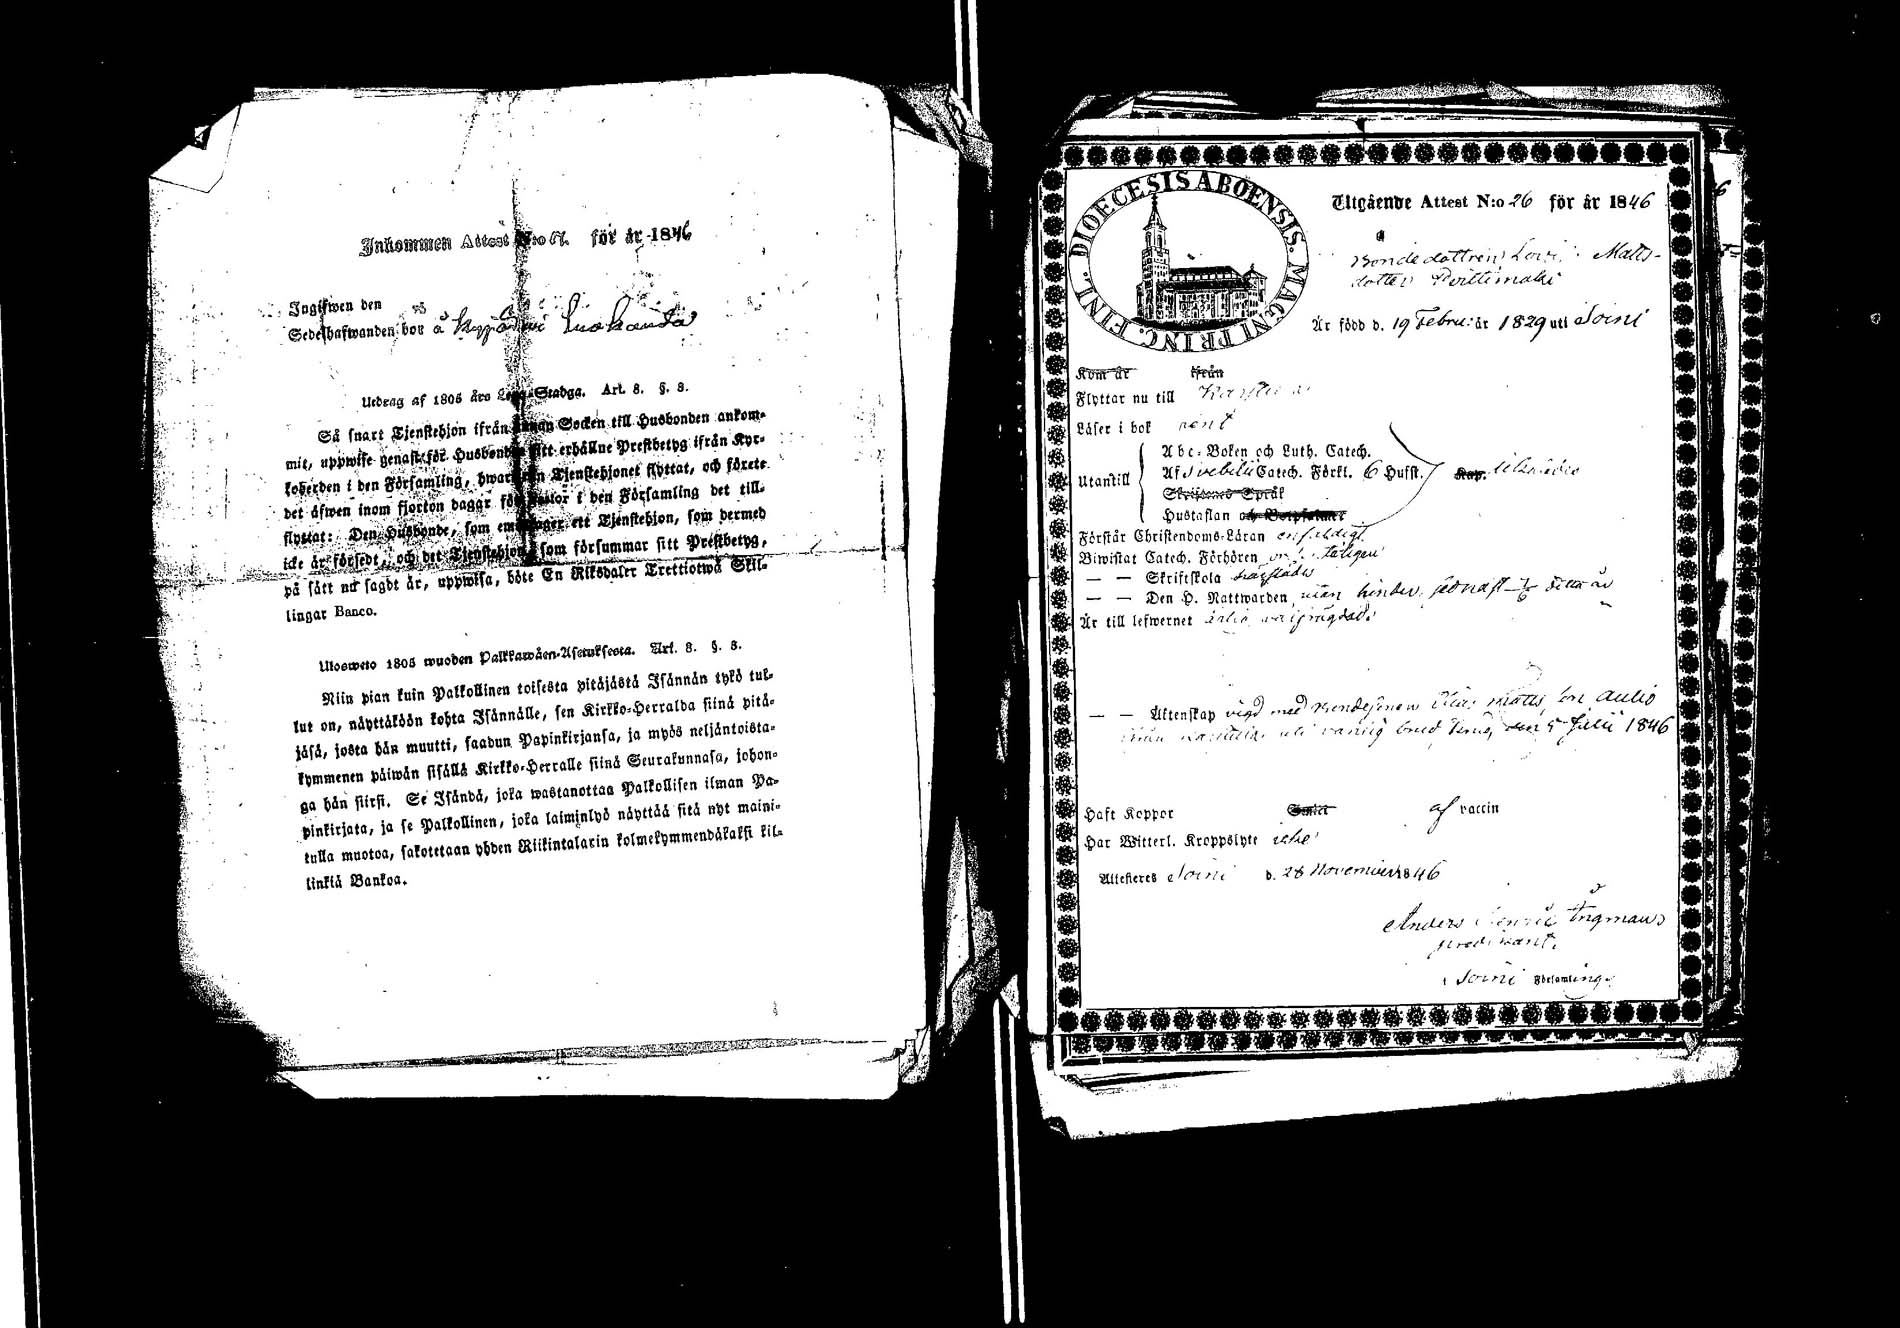 Inkommen Attest N:o 67. för år 1846
Ingifwen den
Sedelhafwanden bor å
Utdrag af 1805 års Lego-Stadga. Art. 8. §. 8.
Så snart Tjenstehjon ifrån annan Socken till Husbonden ankom-
mit, uppwise genast för Husbonden sitt erhållne Prestbetyg ifrån Kyr-
koherden i den Församling, hwarifrån Tjenstehjonet flyttat, och förete
det äfwen inom fjorton dagar för Pastor i den Församling det till-
flyttat: Den Husbonde, som emottager ett Tjenstehjon, som dermed
icke är försedt, och det Tjenstehjon, som försummar sitt Prestbetyg,
på sätt nu sagdt är, uppwisa, böte En Riksdaler Trettiotwå Skil-
lingar Banco.
Ulosweto 1805 wuoden Palkkawäen-Asetuksesta. Art. 8. §. 8.
Niin pian kuin Palkollinen toisesta pitäjästä Isännän tykö tul-
lut on, näyttäköön kohta Isännälle, sen Kirkko-Herralda siinä pitä-
jäsä, josta hän muutti, saadun Papinkirjansa, ja myös neljäntoista-
kymmenen päiwän sisällä Kirkko-Herralle siinä Seurakunnasa, johon-
ga hän siirsi. Se Isändä, joka wastanottaa Palkollisen ilman Pa-
pinkirjata, ja se Palkollinen, joka laiminlyö näyttää sitä nyt maini-
tulla muotoa, sakotetaan yhden Riikintalarin kolmekymmendäkaksi kil-
linkiä Bankoa.
DIOECESIS ABOENSIS. MAGNI PRINC. FINL.
Utgående Attest N:o 26 för år 1846
Bondedottren Lovisa Matts-
dotter
Är född d. 19 Febru: år 1829 uti Soini
Kom år ifrån
Flyttar nu till Karstula
Läser i bok rent
Utantill
Abc-Boken och Luth. Catech.
Af Svebilii Catech. Förkl. 6 Hufst. Kap.
Skriftenes Språk
Hustaflan och Botpsalmer
Förstår Christendoms-Läran enfaldigt
Biwistat Catech. Förhören
— — Skriftskola
— — Den H. Nattwarden utan hinder, sednast detta år
Är till lefwernet ärlig
— — Äktenskap vigd med Bondesonen Matts son Aulio
ifrån Karstula uti vanlig brud den 5 Julii 1846
Haft Koppor af vaccin
Har Witterl. Kroppslyte icke
Attesteras Soini d. 28 November 1846
Anders Henric Ingman
predikant
i Soini Församling.